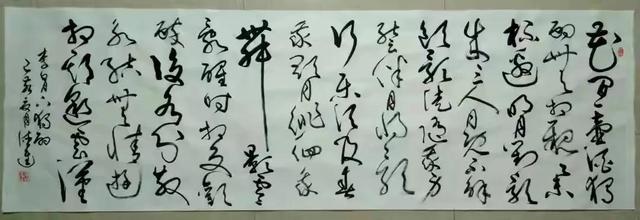 花間一壺酒獨
酌無相親舉
杯邀明月對影
成三人月既不解
飲影徒隨我身
暫伴月將影
行樂須及春
我歌月徘徊我
舞影零
亂醒時相交歡
醉後各分散
永結無情遊
相期邈雲漢
李白月下獨酌